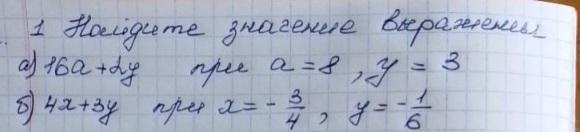 1 Найдите значение выражены
а) 16a+2y при a=8, y = 3
б) 4x+3y при x=-3/4, y=-1/6